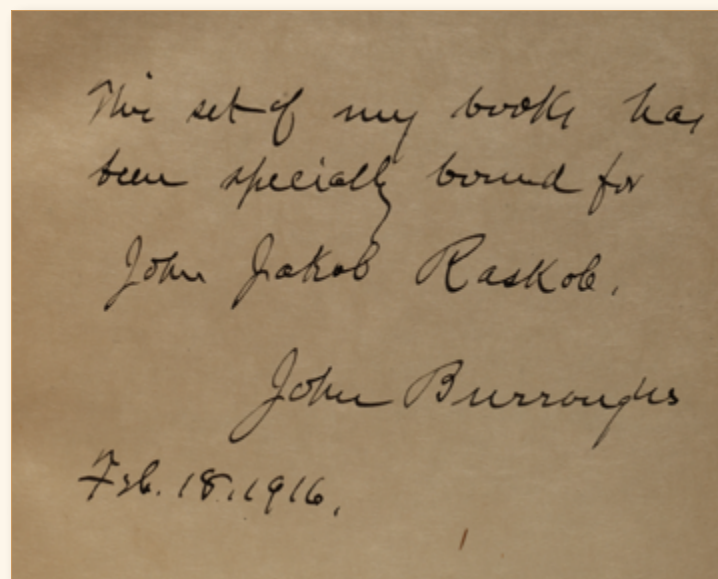 This set of my books has
been specially bound for
John Jakob Raskob.
John Burroughs
Feb. 18. 1916.